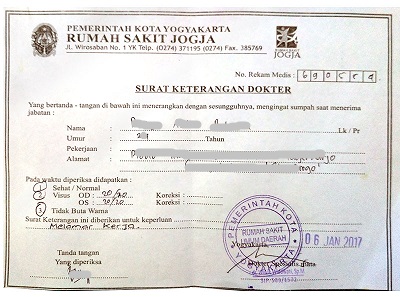 PEMERINTAH KOTA YOGYAKARTA
RUMAH SAKIT JOGJA
Jl. Wirosaban No. 1 YK Telp. (0274) 371195 (0274) Fax. 385769
JOGJA
No. Rekam Medis :
SURAT KETERANGAN DOKTER
Yang bertanda - tangan di bawah ini menerangkan dengan sesungguhnya, mengingat sumpah saat menerima
jabatan :
Nama : Lk / Pr
Umur : Tahun
Pekerjaan :
Alamat :
Pada waktu diperiksa didapatkan :
1 Sehat / Normal
2 Visus OD : 20/20 Koreksi :
OS : 20/20 Koreksi :
3 Tidak Buta Warna
Surat Keterangan ini diberikan untuk keperluan
Melamar Kerja.
PEMERINTAH KOTA
RUMAH SAKIT
UMUM DAERAH
Yogyakarta, 06 JAN 2017
Tanda tangan
Yang diperiksa
Dokter Spesialis Mata